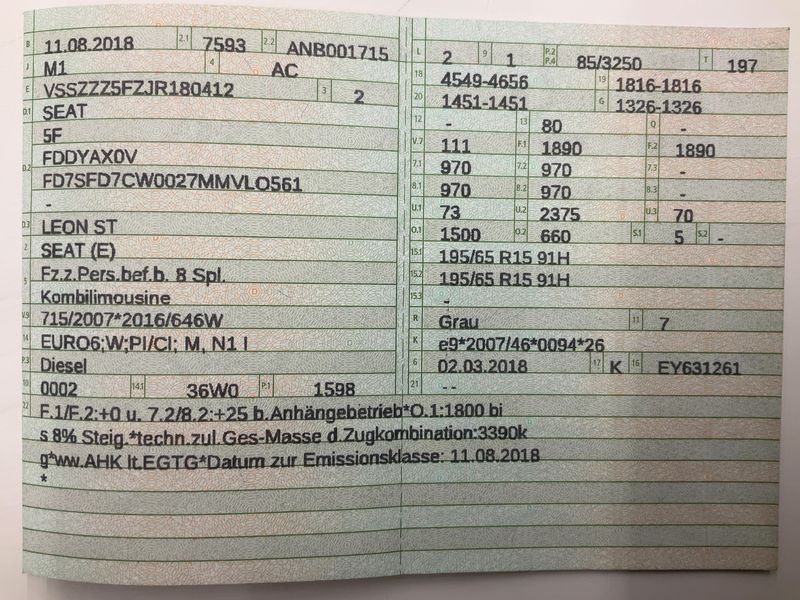 B 11.08.2018 2.1 7593 2.2 ANB001715
J M1 4 AC
E VSSZZZ5FZJR180412 3 2
D.1 SEAT
5F
D.2 FDDYAX0V
FD7SFD7CW0027MMVLO561
-
D.3 LEON ST
2 SEAT (E)
5 Fz.z.Pers.bef.b. 8 Spl.
Kombilimousine
V.9 715/2007*2016/646W
14 EURO6;W;PI/CI; M, N1 I
P.3 Diesel
10 0002 14.1 36W0 P.1 1598
22 F.1/F.2:+0 u. 7.2/8.2:+25 b.Anhängebetrieb*O.1:1800 bi
s 8% Steig.*techn.zul.Ges-Masse d.Zugkombination:3390k
g*ww.AHK lt.EGTG*Datum zur Emissionsklasse: 11.08.2018
*
L 2 9 1 P.2 P.4 85/3250 T 197
18 4549-4656 19 1816-1816
20 1451-1451 G 1326-1326
12 - 13 80 Q -
V.7 111 F.1 1890 F.2 1890
7.1 970 7.2 970 7.3 -
8.1 970 8.2 970 8.3 -
U.1 73 U.2 2375 U.3 70
O.1 1500 O.2 660 S.1 5 S.2 -
15.1 195/65 R15 91H
15.2 195/65 R15 91H
15.3 -
R Grau 11 7
K e9*2007/46*0094*26
6 02.03.2018 17 K 16 EY631261
21 --